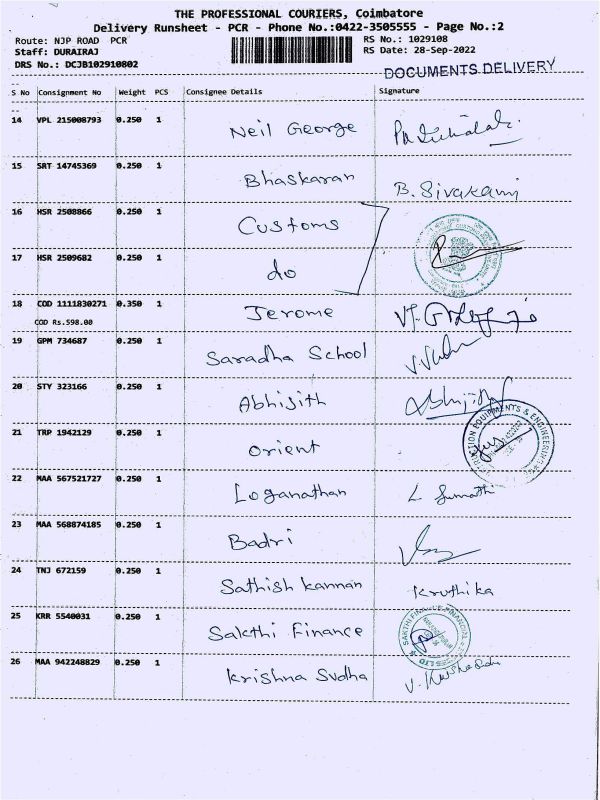 THE PROFESSIONAL COURIERS, Coimbatore
Delivery Runsheet - PCR - Phone No.:0422-3505555 - Page No.:2
Route: NJP ROAD PCR RS No.: 1029108
Staff: DURAIRAJ RS Date: 28-Sep-2022
DRS No.: DCJB102910802
DOCUMENTS DELIVERY
S No Consignment No Weight PCS Consignee Details Signature
14 VPL 215008793 0.250 1 Neil George
15 SRT 14745369 0.250 1 Bhaskaran B. Sivakami
16 HSR 2508866 0.250 1 Customs
17 HSR 2509682 0.250 1 do
18 COD 1111830271 0.350 1 Jerome
COD Rs.598.00
19 GPM 734687 0.250 1 Saradha School
20 STY 323166 0.250 1 Abhijith Abhijith
21 TRP 1942129 0.250 1 Orient
22 MAA 567521727 0.250 1 Loganathan L Sumathi
23 MAA 568874185 0.250 1 Badri
24 TNJ 672159 0.250 1 Sathish kannan Kruthika
25 KRR 5540031 0.250 1 Sakthi Finance
26 MAA 942248829 0.250 1 Krishna Sudha